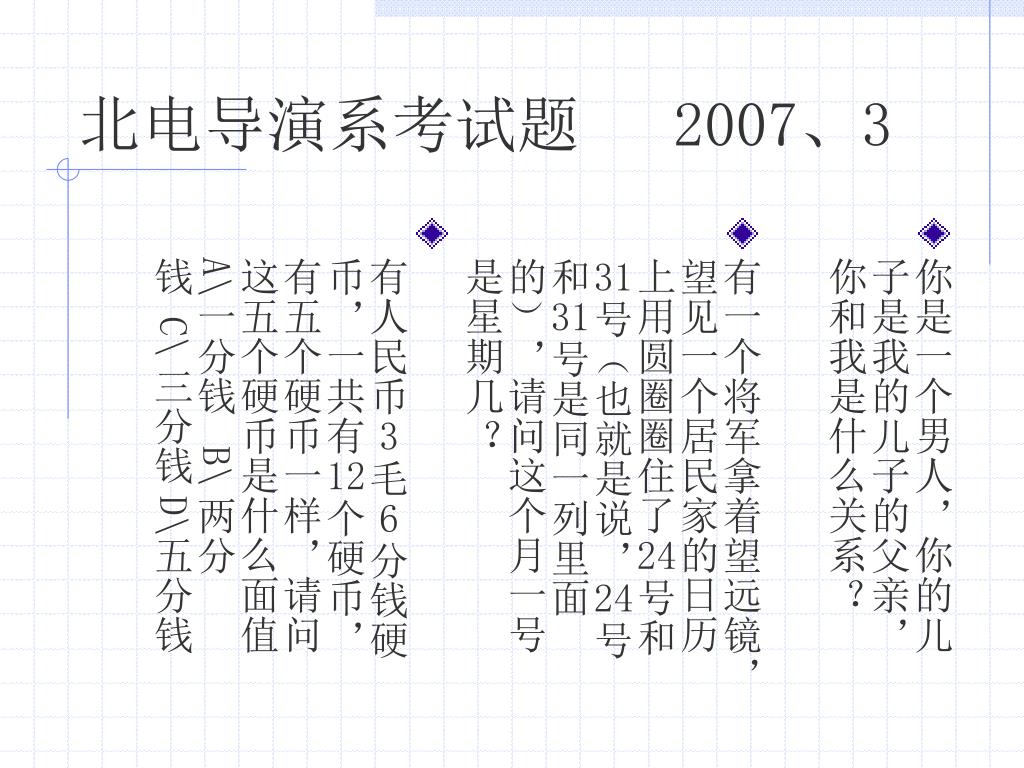 北电导演系考试题 2007、3
你是一个男人，你的儿
子是我的儿子的父亲，
你和我是什么关系？
有一个将军拿着望远镜，
望见一个居民家的日历
上用圆圈圈住了24号和
31号（也就是说，24号
和31号是同一列里面
的），请问这个月一号
是星期几？
有人民币3毛6分钱硬
币，一共有12个硬币，
有五个硬币一样，请问
这五个硬币是什么面值
A\一分钱 B\两分
钱 C\三分钱D\五分钱